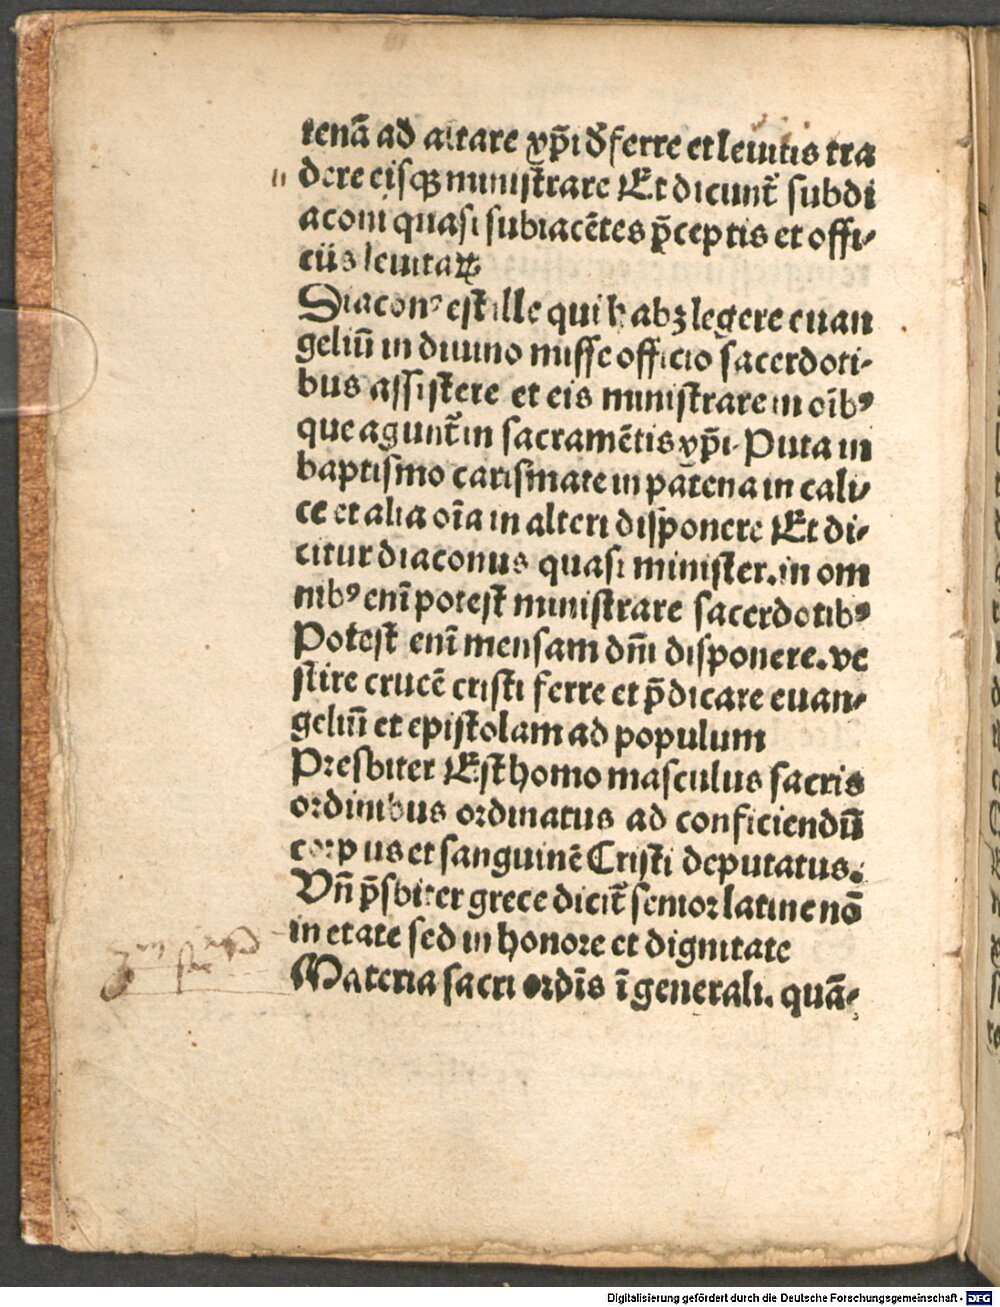 tenā ad altare xp̄i d̄ferre et leuitis tra
dere eisqȝ ministrare Et dicunt̄ subdi
aconi quasi subiacētes p̄ceptis et offi-
ciis leuitaꝝ
Diaconꝰ est ille qui habȝ legere euan
geliū in diuino misse officio sacerdoti-
bus assistere et eis ministrare in oībꝰ
que agunt̄ in sacramētis xp̄i. Puta in
baptismo carismate in patena in cali-
ce et alia oīa in alteri disponere Et di-
citur diaconus quasi minister. in om
nibꝰ enī potest ministrare sacerdotibꝰ
Potest enī mensam dm̄i disponere. ve
stire crucē cristi ferre et p̄dicare euan-
geliū et epistolam ad populum
Presbiter Est homo masculus sacris
ordinibus ordinatus ad conficiendū
corpus et sanguinē Cristi deputatus.
Vn̄ p̄sbiter grece dicit̄ senior latine nō
in etate sed in honore et dignitate
Materia sacri ordīs ī generali. quā-
Digitalisierung gefördert durch die Deutsche Forschungsgemeinschaft - DFG